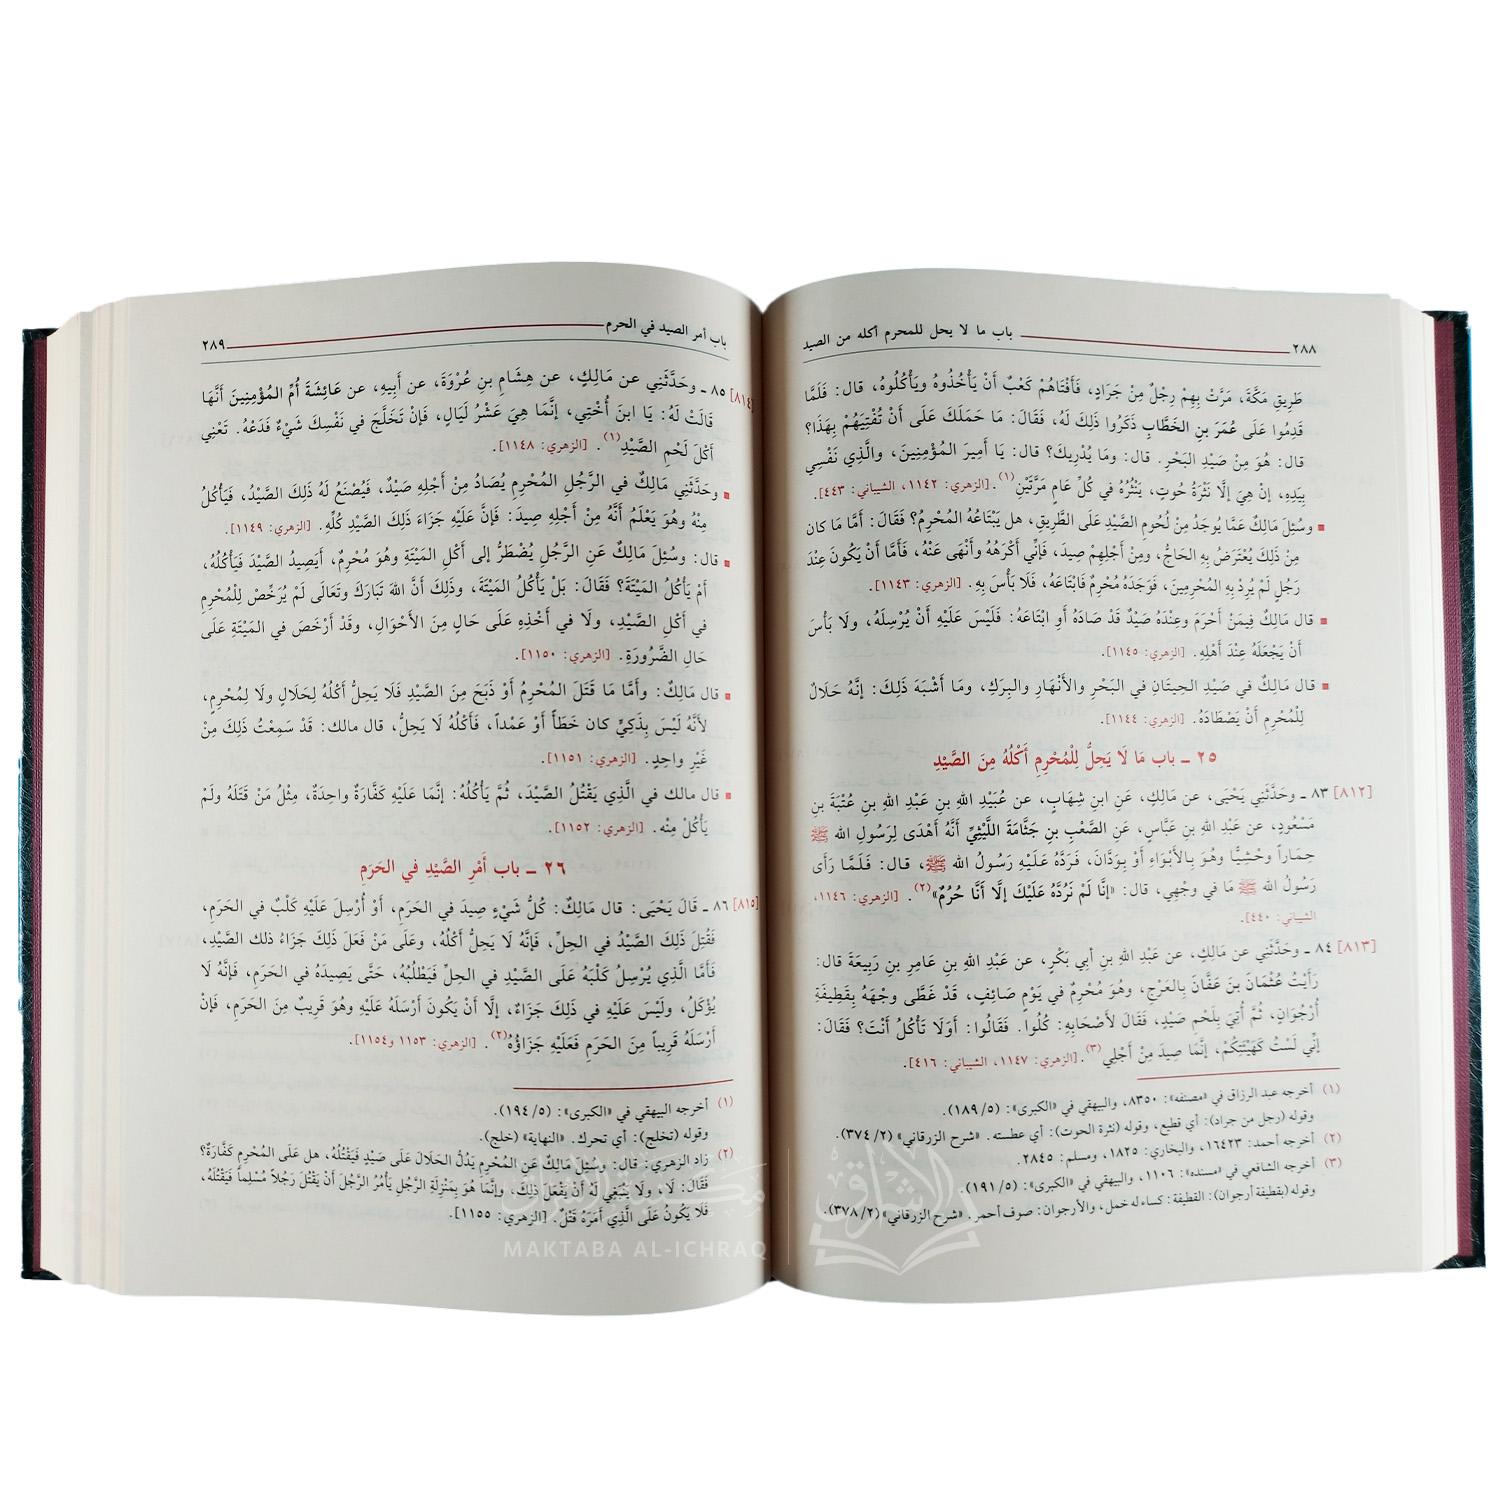 ٢٨٨ باب ما لا يحل للمحرم أكله من الصيد
طَرِيقِ مَكَّةَ، مَرَّتْ بِهِمْ رِجْلٌ مِنْ جَرَادٍ، فَأَفْتَاهُمْ كَعْبٌ أَنْ يَأْخُذُوهُ ويَأْكُلُوهُ، قال: فَلَمَّا
قَدِمُوا عَلَى عُمَرَ بنِ الخَطَّابِ ذَكَرُوا ذَلِكَ لَهُ، فَقَالَ: مَا حَمَلَكَ عَلَى أَنْ تُفْتِيَهُمْ بِهَذَا؟
قال: هُوَ مِنْ صَيْدِ البَحْرِ. قال: ومَا يُدْرِيكَ؟ قال: يَا أَمِيرَ المُؤْمِنِينَ، والَّذِي نَفْسِي
بِيَدِهِ، إنْ هِيَ إلَّا نَثْرَةُ حُوتٍ، يَنْثُرُهُ في كُلِّ عَامٍ مَرَّتَيْنِ(١). [الزهري: ١١٤٢، الشيباني: ٤٤٣].
■ وسُئِلَ مَالِكٌ عَمَّا يُوجَدُ مِنْ لُحُومِ الصَّيْدِ عَلَى الطَّرِيقِ، هل يَبْتَاعُهُ المُحْرِمُ؟ فَقَالَ: أمَّا مَا كان
مِنْ ذَلِكَ يُعْتَرَضُ بِهِ الحَاجُّ، ومِنْ أَجْلِهِمْ صِيدَ، فَإنِّي أَكْرَهُهُ وأَنْهَى عَنْهُ، فَأَمَّا أَنْ يَكُونَ عِنْدَ
رَجُلٍ لَمْ يُرِدْ بِهِ المُحْرِمِينَ، فَوَجَدَهُ مُحْرِمٌ فَابْتَاعَهُ، فَلَا بَأْسَ بِهِ. [الزهري: ١١٤٣].
■ قال مَالِكٌ فِيمَنْ أَحْرَمَ وعِنْدَهُ صَيْدٌ قَدْ صَادَهُ أوِ ابْتَاعَهُ: فَلَيْسَ عَلَيْهِ أَنْ يُرْسِلَهُ، ولَا بَأْسَ
أَنْ يَجْعَلَهُ عِنْدَ أَهْلِهِ. [الزهري: ١١٤٥].
■ قال مَالِكٌ في صَيْدِ الحِيتَانِ في البَحْرِ والأَنْهَارِ والبِرَكِ، ومَا أَشْبَهَ ذَلِكَ: إنَّهُ حَلَالٌ
لِلْمُحْرِمِ أَنْ يَصْطَادَهُ. [الزهري: ١١٤٤].
٢٥ ـ باب مَا لَا يَحِلُّ لِلْمُحْرِمِ أَكْلُهُ مِنَ الصَّيْدِ
[٨١٢] ٨٣ ـ وحَدَّثَنِي يَحْيَى، عن مَالِكٍ، عَنِ ابنِ شِهَابٍ، عن عُبَيْدِ اللهِ بنِ عَبْدِ اللهِ بنِ عُتْبَةَ بنِ
مَسْعُودٍ، عن عَبْدِ اللهِ بنِ عَبَّاسٍ، عَنِ الصَّعْبِ بنِ جَثَّامَةَ اللَّيْثِيِّ أَنَّهُ أَهْدَى لِرَسُولِ اللهِ ﷺ
حِمَاراً وحْشِيًّا وهُوَ بِالأَبْوَاءِ أَوْ بِوَدَّانَ، فَرَدَّهُ عَلَيْهِ رَسُولُ الله ﷺ، قال: فَلَمَّا رَأَى
رَسُولُ الله ﷺ مَا في وجْهِي، قال: «إنَّا لَمْ نَرُدَّهُ عَلَيْكَ إلَّا أَنَّا حُرُمٌ»(٢). [الزهري: ١١٤٦،
الشيباني: ٤٤٠].
[٨١٣] ٨٤ ـ وحَدَّثَنِي عن مَالِكٍ، عن عَبْدِ اللهِ بنِ أبي بَكْرٍ، عن عَبْدِ اللهِ بنِ عَامِرِ بنِ رَبِيعَةَ قال:
رَأَيْتُ عُثْمَانَ بنَ عَفَّانَ بِالعَرْجِ، وهُوَ مُحْرِمٌ في يَوْمٍ صَائِفٍ، قَدْ غَطَّى وجْهَهُ بِقَطِيفَةِ
أُرْجُوَانٍ، ثُمَّ أُتِيَ بِلَحْمِ صَيْدٍ، فَقَالَ لأَصْحَابِهِ: كُلُوا. فَقَالُوا: أَوَلَا تَأْكُلُ أَنْتَ؟ فَقَالَ:
إنِّي لَسْتُ كَهَيْئَتِكُمْ، إنَّمَا صِيدَ مِنْ أَجْلِي(٣). [الزهري: ١١٤٧، الشيباني: ٤١٦].
(١) أخرجه عبد الرزاق في «مصنفه»: ٨٣٥٠، والبيهقي في «الكبرى»: (١٨٩/٥).
وقوله (رجل من جراد): أي قطيع، وقوله (نثرة الحوت): أي عطسته. «شرح الزرقاني» (٣٧٤/٢).
(٢) أخرجه أحمد: ١٦٤٢٣، والبخاري: ١٨٢٥، ومسلم: ٢٨٤٥.
(٣) أخرجه الشافعي في «مسنده»: ١١٠٦، والبيهقي في «الكبرى»: (١٩١/٥).
وقوله (بقطيفة أرجوان): القطيفة: كساء له خمل، والأرجوان: صوف أحمر. «شرح الزرقاني» (٣٧٨/٢).
باب أمر الصيد في الحرم ٢٨٩
[٨١٤] ٨٥ ـ وحَدَّثَنِي عن مَالِكٍ، عن هِشَامِ بنِ عُرْوَةَ، عن أَبِيهِ، عن عَائِشَةَ أُمِّ المُؤْمِنِينَ أَنَّهَا
قَالَتْ لَهُ: يَا ابنَ أُخْتِي، إنَّمَا هِيَ عَشْرُ لَيَالٍ، فَإنْ تَخَلَّجَ في نَفْسِكَ شَيْءٌ فَدَعْهُ. تَعْنِي
أَكْلَ لَحْمِ الصَّيْدِ(١). [الزهري: ١١٤٨].
■ وحَدَّثَنِي مَالِكٌ في الرَّجُلِ المُحْرِمِ يُصَادُ مِنْ أَجْلِهِ صَيْدٌ، فَيُصْنَعُ لَهُ ذَلِكَ الصَّيْدُ، فَيَأْكُلُ
مِنْهُ وهُوَ يَعْلَمُ أَنَّهُ مِنْ أَجْلِهِ صِيدَ: فَإنَّ عَلَيْهِ جَزَاءَ ذَلِكَ الصَّيْدِ كُلِّهِ. [الزهري: ١١٤٩].
■ قال: وسُئِلَ مَالِكٌ عَنِ الرَّجُلِ يُضْطَرُّ إلى أَكْلِ المَيْتَةِ وهُوَ مُحْرِمٌ، أَيَصِيدُ الصَّيْدَ فَيَأْكُلُهُ،
أَمْ يَأْكُلُ المَيْتَةَ؟ فَقَالَ: بَلْ يَأْكُلُ المَيْتَةَ، وذَلِكَ أَنَّ اللهَ تَبَارَكَ وتَعَالَى لَمْ يُرَخِّصْ لِلْمُحْرِمِ
في أَكْلِ الصَّيْدِ، ولَا في أَخْذِهِ عَلَى حَالٍ مِنَ الأَحْوَالِ، وقَدْ أَرْخَصَ في المَيْتَةِ عَلَى
حَالِ الضَّرُورَةِ. [الزهري: ١١٥٠].
■ قال مَالِكٌ: وأَمَّا مَا قَتَلَ المُحْرِمُ أَوْ ذَبَحَ مِنَ الصَّيْدِ فَلَا يَحِلُّ أَكْلُهُ لِحَلَالٍ ولَا لِمُحْرِمٍ،
لأَنَّهُ لَيْسَ بِذَكِيٍّ كان خَطَأً أَوْ عَمْداً، فَأَكْلُهُ لَا يَحِلُّ، قال مالك: قَدْ سَمِعْتُ ذَلِكَ مِنْ
غَيْرِ واحِدٍ. [الزهري: ١١٥١].
■ قال مالك في الَّذِي يَقْتُلُ الصَّيْدَ، ثُمَّ يَأْكُلُهُ: إنَّمَا عَلَيْهِ كَفَّارَةٌ واحِدَةٌ، مِثْلُ مَنْ قَتَلَهُ ولَمْ
يَأْكُلْ مِنْه. [الزهري: ١١٥٢].
٢٦ ـ باب أَمْرِ الصَّيْدِ في الحَرَمِ
[٨١٥] ٨٦ ـ قَالَ يَحْيَى: قال مَالِكٌ: كُلُّ شَيْءٍ صِيدَ في الحَرَمِ، أَوْ أُرْسِلَ عَلَيْهِ كَلْبٌ في الحَرَمِ،
فَقُتِلَ ذَلِكَ الصَّيْدُ في الحِلِّ، فَإنَّهُ لَا يَحِلُّ أَكْلُهُ، وعَلَى مَنْ فَعَلَ ذَلِكَ جَزَاءُ ذلك الصَّيْدِ،
فَأَمَّا الَّذِي يُرْسِلُ كَلْبَهُ عَلَى الصَّيْدِ في الحِلِّ فَيَطْلُبُهُ، حَتَّى يَصِيدَهُ في الحَرَمِ، فَإنَّهُ لَا
يُؤْكَلُ، ولَيْسَ عَلَيْهِ في ذَلِكَ جَزَاءٌ، إلَّا أَنْ يَكُونَ أَرْسَلَهُ عَلَيْهِ وهُوَ قَرِيبٌ مِنَ الحَرَمِ، فَإنْ
أَرْسَلَهُ قَرِيباً مِنَ الحَرَمِ فَعَلَيْهِ جَزَاؤُهُ(٢). [الزهري: ١١٥٣ و١١٥٤].
(١) أخرجه البيهقي في «الكبرى»: (١٩٤/٥).
وقوله (تخلج): أي تحرك. «النهاية» (خلج).
(٢) زاد الزهري: قال: وسُئِلَ مَالِكٌ عَنِ المُحْرِمِ يَدُلُّ الحَلَالَ عَلَى صَيْدٍ فَيَقْتُلُهُ، هل عَلَى المُحْرِمِ كَفَّارَةٌ؟
فَقَالَ: لَا، ولَا يَنْبَغِي لَهُ أَنْ يَفْعَلَ ذَلِكَ، وإنَّمَا هُوَ بِمَنْزِلَةِ الرَّجُلِ يَأْمُرُ الرَّجُلَ أَنْ يَقْتُلَ رَجُلاً مُسْلِماً فَيَقْتُلَهُ،
فَلَا يَكُونُ عَلَى الَّذِي أَمَرَهُ قَتْلٌ. [الزهري: ١١٥٥].
مكتبة الإشراق
MAKTABA AL-ICHRAQ